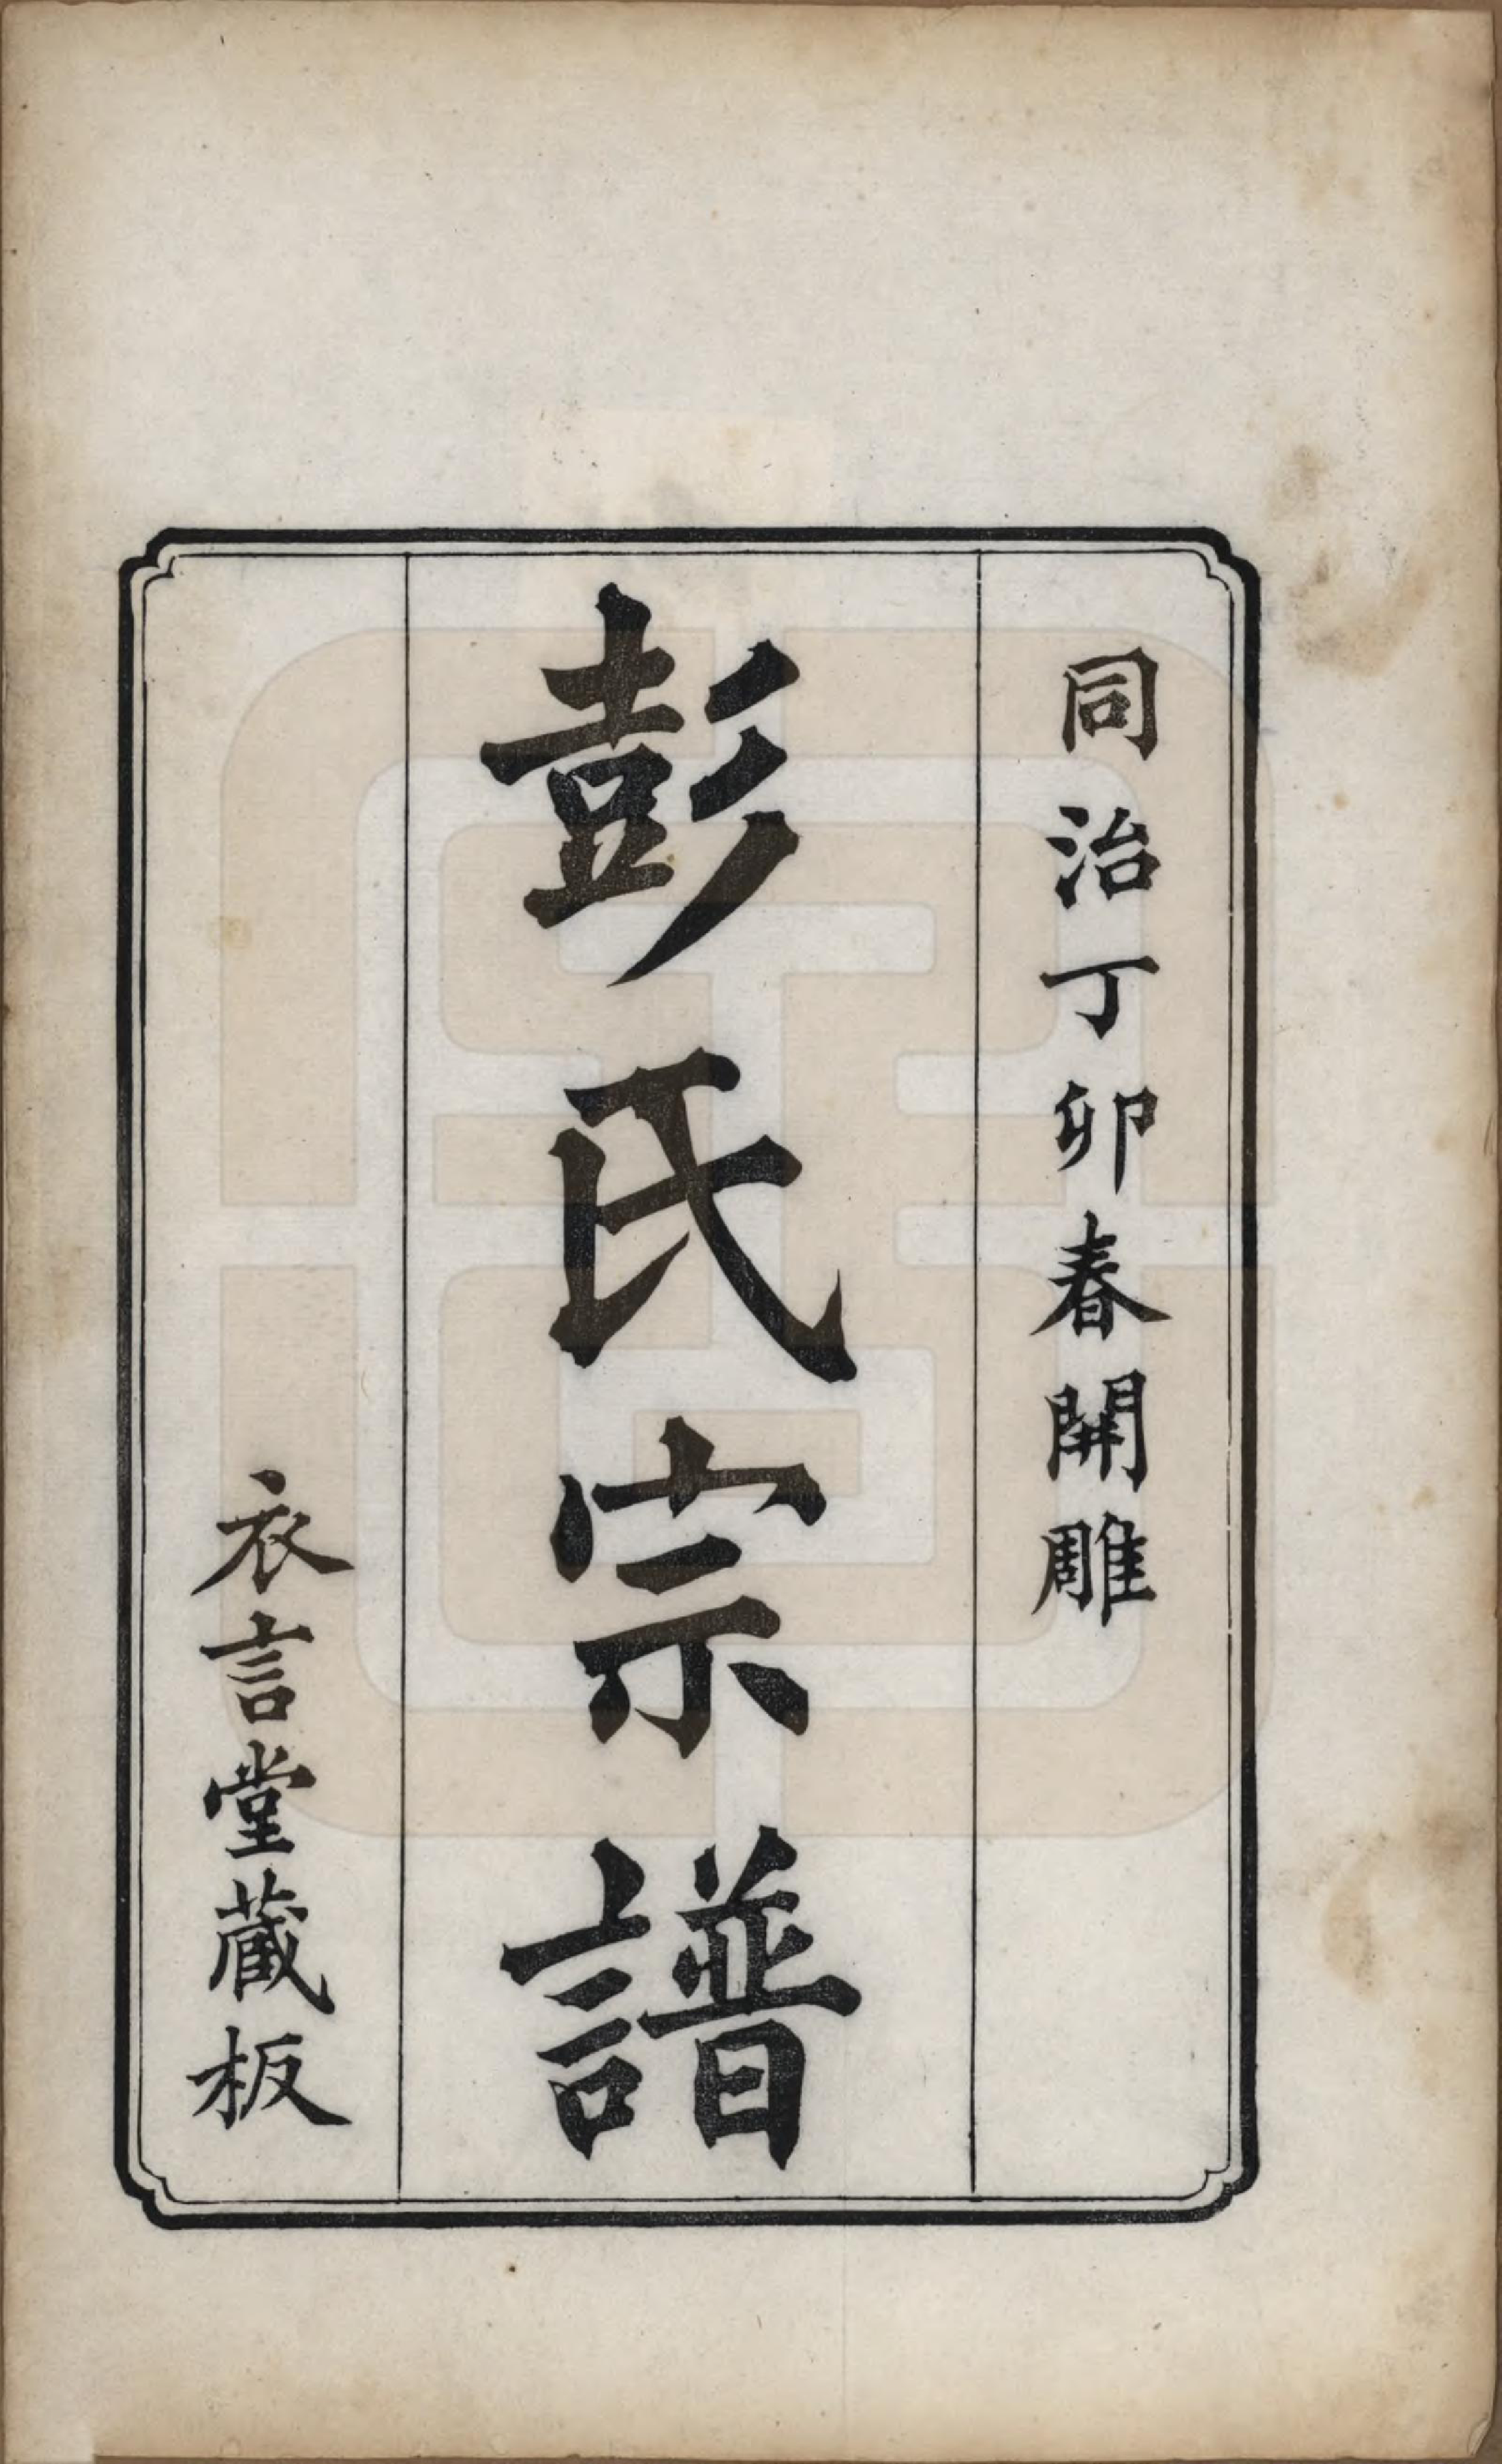 同治丁卯春開雕
彭氏宗譜
衣言堂藏板